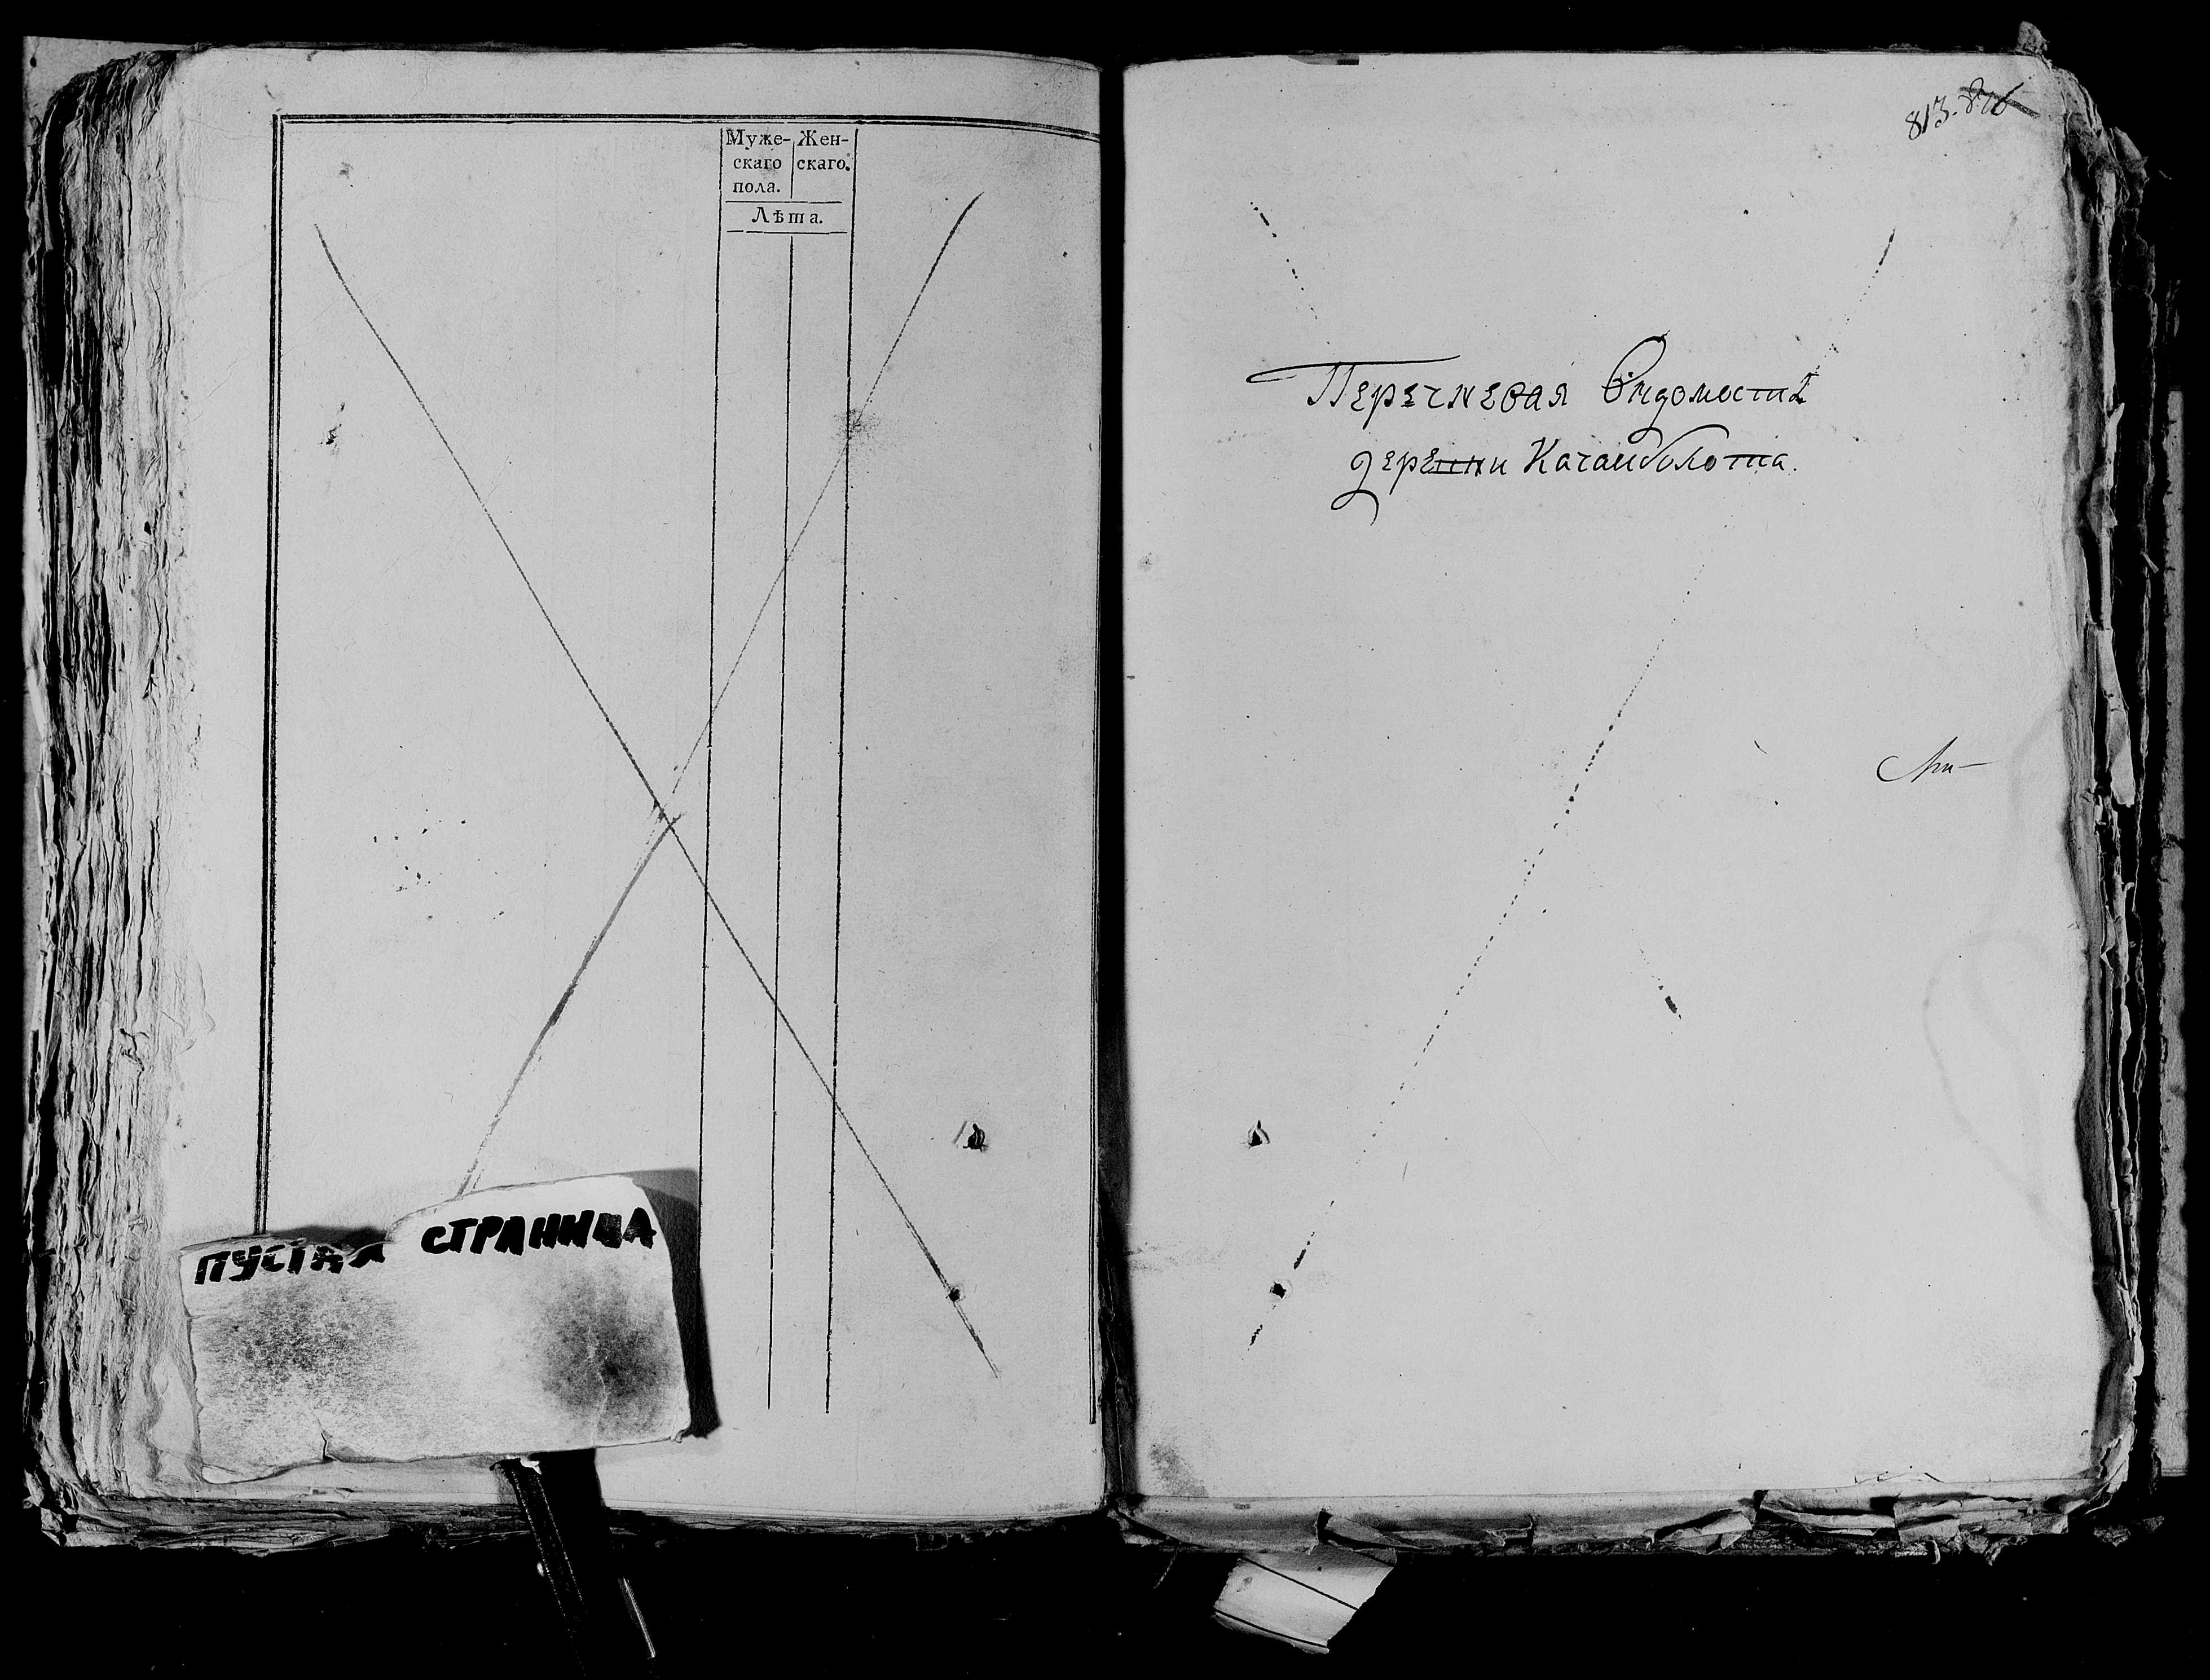 Муже-
скаго
пола.
Жен-
скаго.
Лѣта.
ПУСТАЯ СТРАНИЦА
813. 816
Перечневая Вѣдомость
деревни Качанболота.